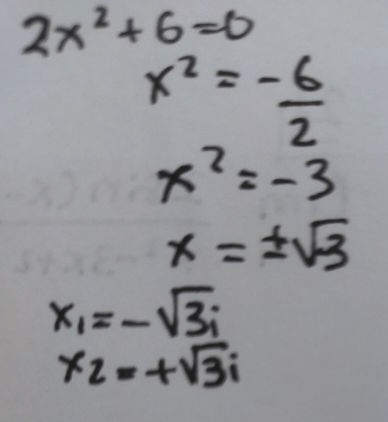 2x² + 6 = 0
x² = -6/2
x² = -3
x = ±√-3
x₁ = -√3i
x₂ = +√3i